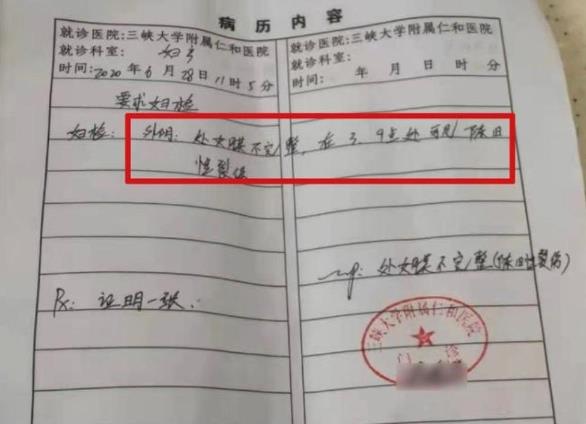 病历内容
就诊医院:三峡大学附属仁和医院
就诊科室: 妇产
时间:2020年6月28日11时5分
就诊医院:三峡大学附属仁和医院
就诊科室:
时间: 年 月 日 时 分
要求妇检
妇检: 外阴: 处女膜不完整, 在3、9点处可见陈旧
性裂伤
处女膜不完整(陈旧性裂伤)
Rx: 证明一张.
三峡大学附属仁和医院
门诊